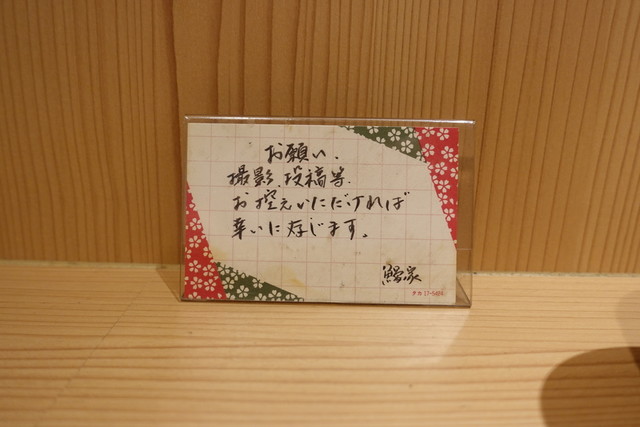 お願い.
撮影.投稿等.
お控えいただければ
幸いに存じます。
鰻家